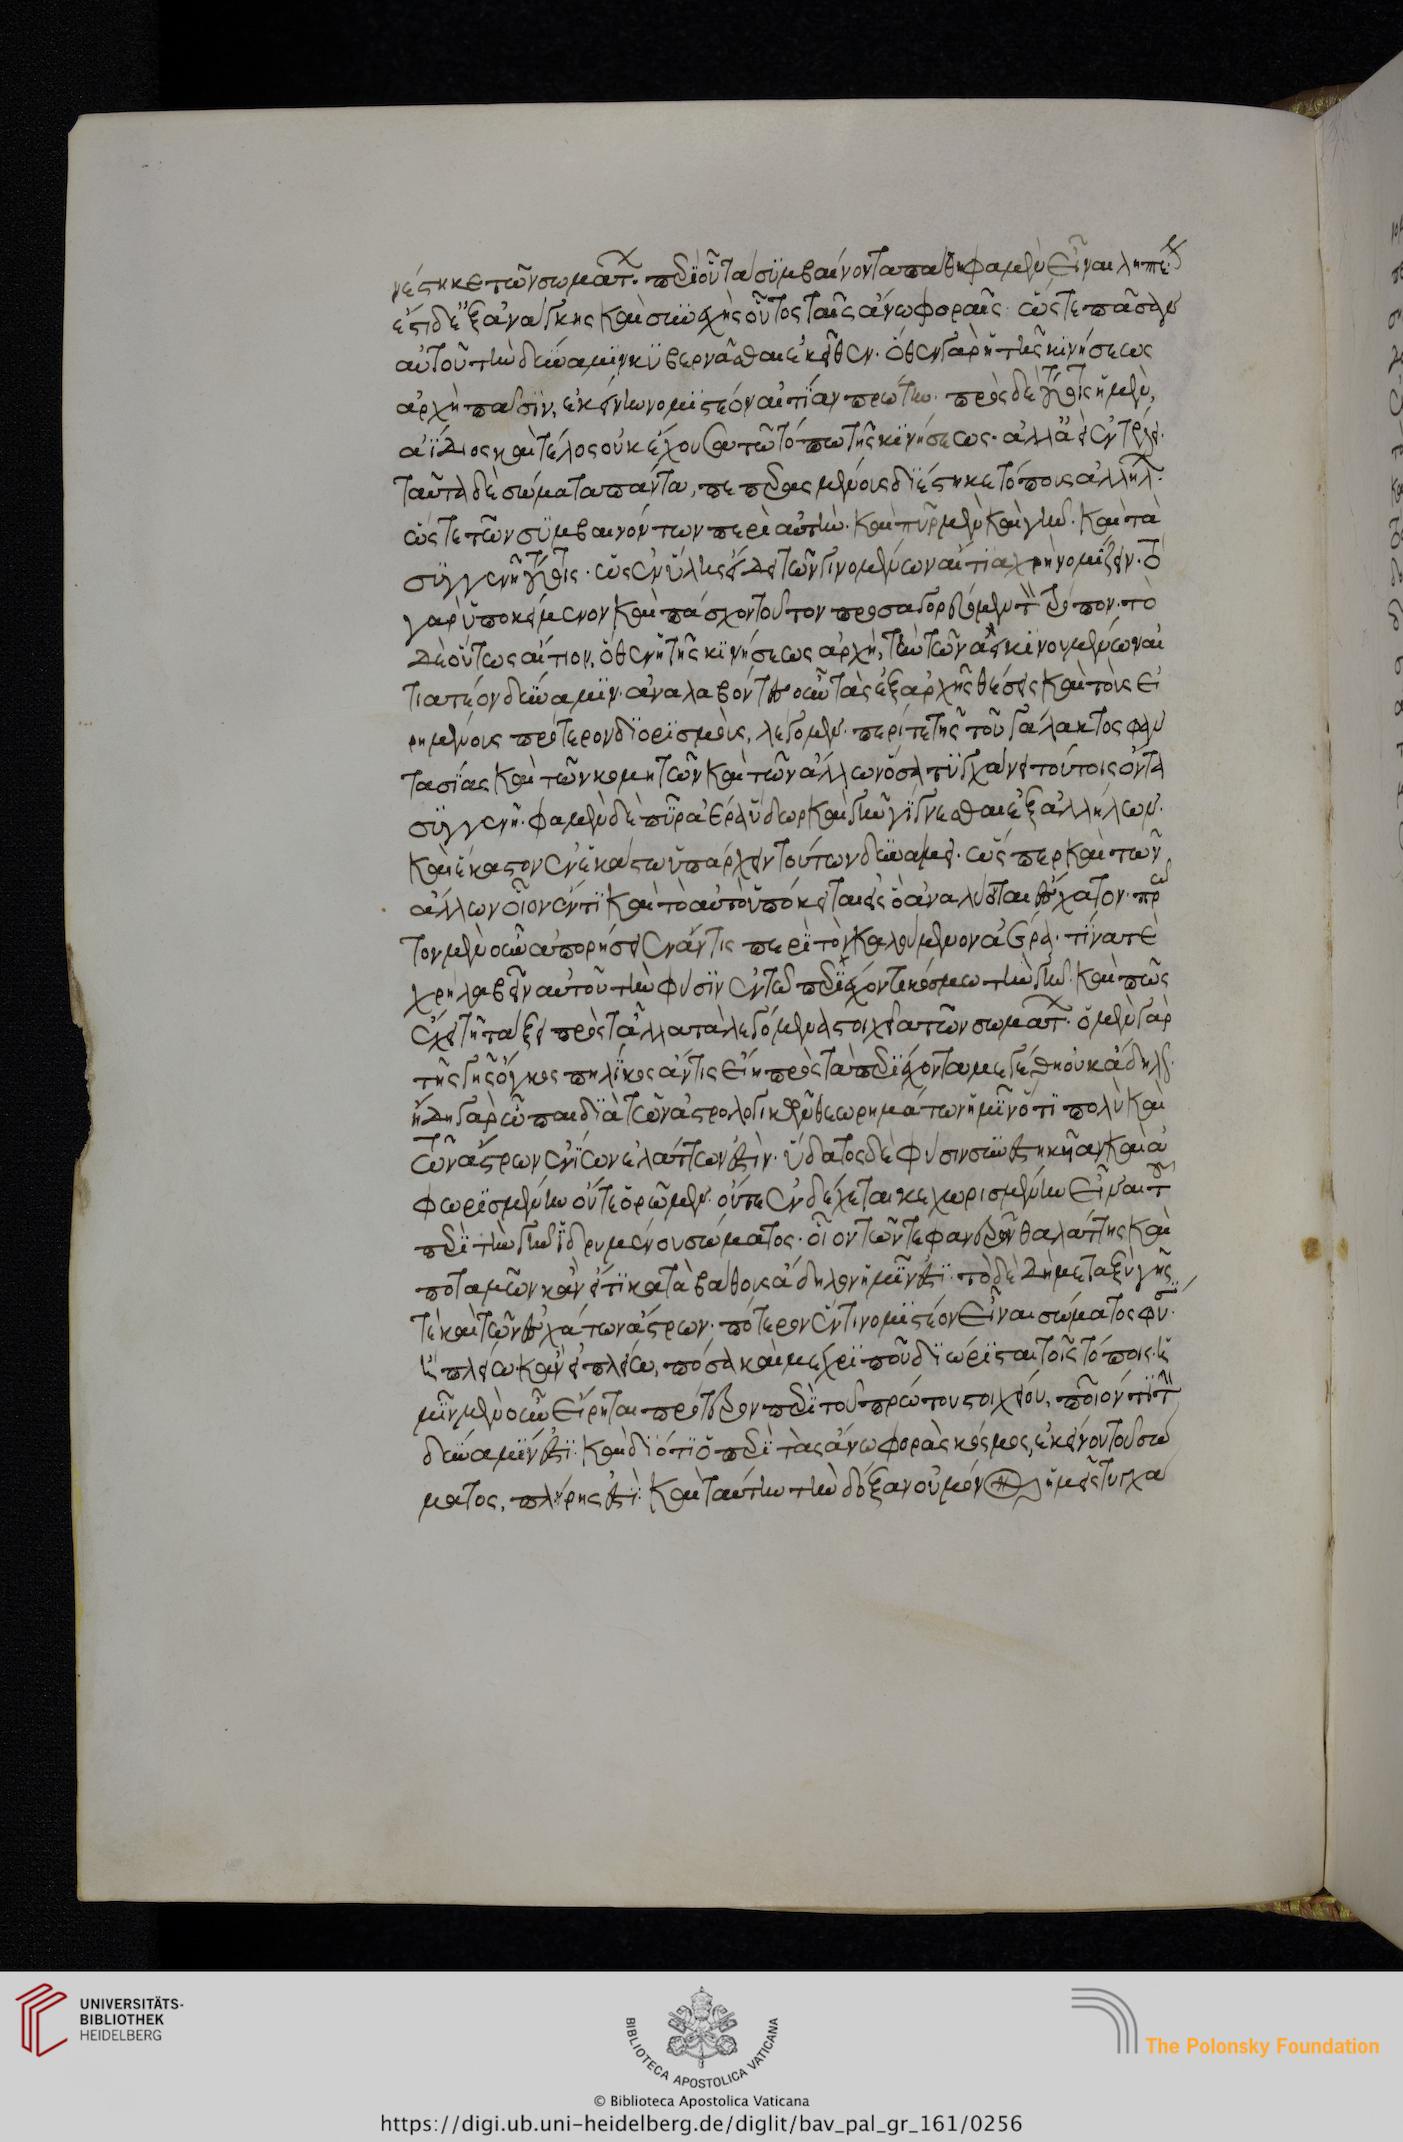 νέστηκε τῶν σωμάτων· περὶ ὃν τὰ συμβαίνοντα πάθη φαμὲν εἶναι ληπτέον·
ἔστι δὲ ἐξ ἀνάγκης καὶ συνεχὴς οὗτος ταῖς ἄνω φοραῖς· ὥστε πᾶσαν
αὐτοῦ τὴν δύναμιν κυβερνᾶσθαι ἐκεῖθεν· ὅθεν γὰρ ἡ τῆς κινήσεως
ἀρχὴ πᾶσιν, ἐκείνην νομιστέον αἰτίαν πρώτην· πρὸς δὲ τούτοις ἡ μὲν,
ἀΐδιος καὶ τέλος οὐκ ἔχουσα τῷ τόπῳ τῆς κινήσεως· ἀλλ' ἀεὶ ἐν τέλει·
ταῦτα δὲ σώματα πάντα, πεπερασμένοις διέστηκε τόποις ἀλλήλων·
ὥστε τῶν συμβαινόντων περὶ αὐτὴν· καὶ πῦρ μὲν καὶ γῆν· καὶ τὰ
συγγενῆ τούτοις· ὡς ἐν ὕλης εἴδει τῶν γινομένων αἴτια χρὴ νομίζειν· τὸ
γὰρ ὑποκείμενον καὶ πάσχον τοῦτον προσαγορεύομεν τὸν τρόπον· τὸ
δὲ οὕτως αἴτιον, ὅθεν ἡ τῆς κινήσεως ἀρχὴ, τὴν τῶν ἀεὶ κινουμένων αἰ
τιατέον δύναμιν· ἀναλαβόντες οὖν τὰς ἐξ ἀρχῆς θέσεις καὶ τοὺς εἰ
ρημένους πρότερον διορισμοὺς, λέγομεν· περί τε τῆς τοῦ γάλακτος φαν
τασίας καὶ τῶν κομητῶν καὶ τῶν ἄλλων ὅσα τυγχάνει τούτοις ὄντα
συγγενῆ· φαμὲν δὲ πῦρ ἀέρα ὕδωρ καὶ γῆν γίγνεσθαι ἐξ ἀλλήλων·
καὶ ἕκαστον ἐν ἑκάστῳ ὑπάρχειν τούτων δυνάμει· ὥσπερ καὶ τῶν
ἄλλων οἷον ἕν τι καὶ τὸ αὐτὸ ὑπόκειται εἰς ὃ ἀναλύεται ἔσχατον· πρῶ
τον μὲν οὖν ἀπορήσειεν ἄν τις περὶ τὸν καλούμενον ἀέρα· τίνα τε
χρὴ λαβεῖν αὐτοῦ τὴν φύσιν ἐν τῷ περιέχοντι κόσμῳ τὴν γῆν· καὶ πῶς
ἔχει τῇ τάξει πρὸς τἆλλα τὰ λεγόμενα στοιχεῖα τῶν σωμάτων· ὁ μὲν γὰρ
τῆς γῆς ὄγκος πηλίκος ἄν τις εἴη πρὸς τὰ περιέχοντα μεγέθη οὐκ ἄδηλον·
ἤδη γὰρ ὦπται διὰ τῶν ἀστρολογικῶν θεωρημάτων ἡμῖν ὅτι πολὺ καὶ
τῶν ἄστρων ἐνίων ἐλάττων ἐστὶν· ὕδατος δὲ φύσιν συνεστηκυῖαν καὶ ἀ
φωρισμένην οὔτε ὁρῶμεν· οὔτε ἐνδέχεται κεχωρισμένην εἶναι τοῦ
περὶ τὴν γῆν ἱδρυμένου σώματος· οἷον τῶν τε φανερῶν θαλάττης καὶ
ποταμῶν κἂν εἴ τι κατὰ βάθους ἄδηλον ἡμῖν ἐστι· τὸ δὲ δὴ μεταξὺ γῆς
τε καὶ τῶν ἐσχάτων ἄστρων· πότερον ἕν τι νομιστέον εἶναι σώματος φύσιν·
ἢ πλείω κἂν εἰ πλείω, πόσα καὶ μέχρι ποῦ διώρισται τοῖς τόποις· ἡ
μῖν μὲν οὖν εἴρηται πρότερον περὶ τοῦ πρώτου στοιχείου, ποῖόν τι τὴν
δύναμίν ἐστι· καὶ διότι ὁ περὶ τὰς ἄνω φορὰς κόσμος, ἐκείνου τοῦ σώ
ματος, πλήρης ἐστι· καὶ ταύτην τὴν δόξαν οὐ μόνον ἡμεῖς τυγχά
UNIVERSITÄTS-
BIBLIOTHEK
HEIDELBERG
BIBLIOTECA APOSTOLICA VATICANA
The Polonsky Foundation
© Biblioteca Apostolica Vaticana
https://digi.ub.uni-heidelberg.de/diglit/bav_pal_gr_161/0256